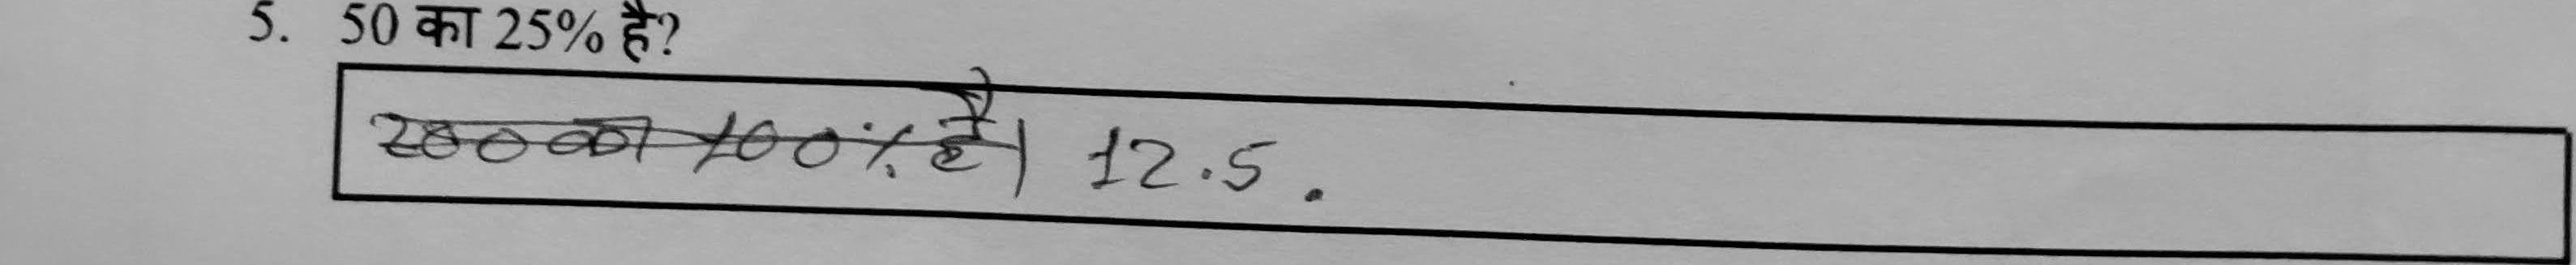 5. 50 का 25% है?
200 का 100% है। 12.5.